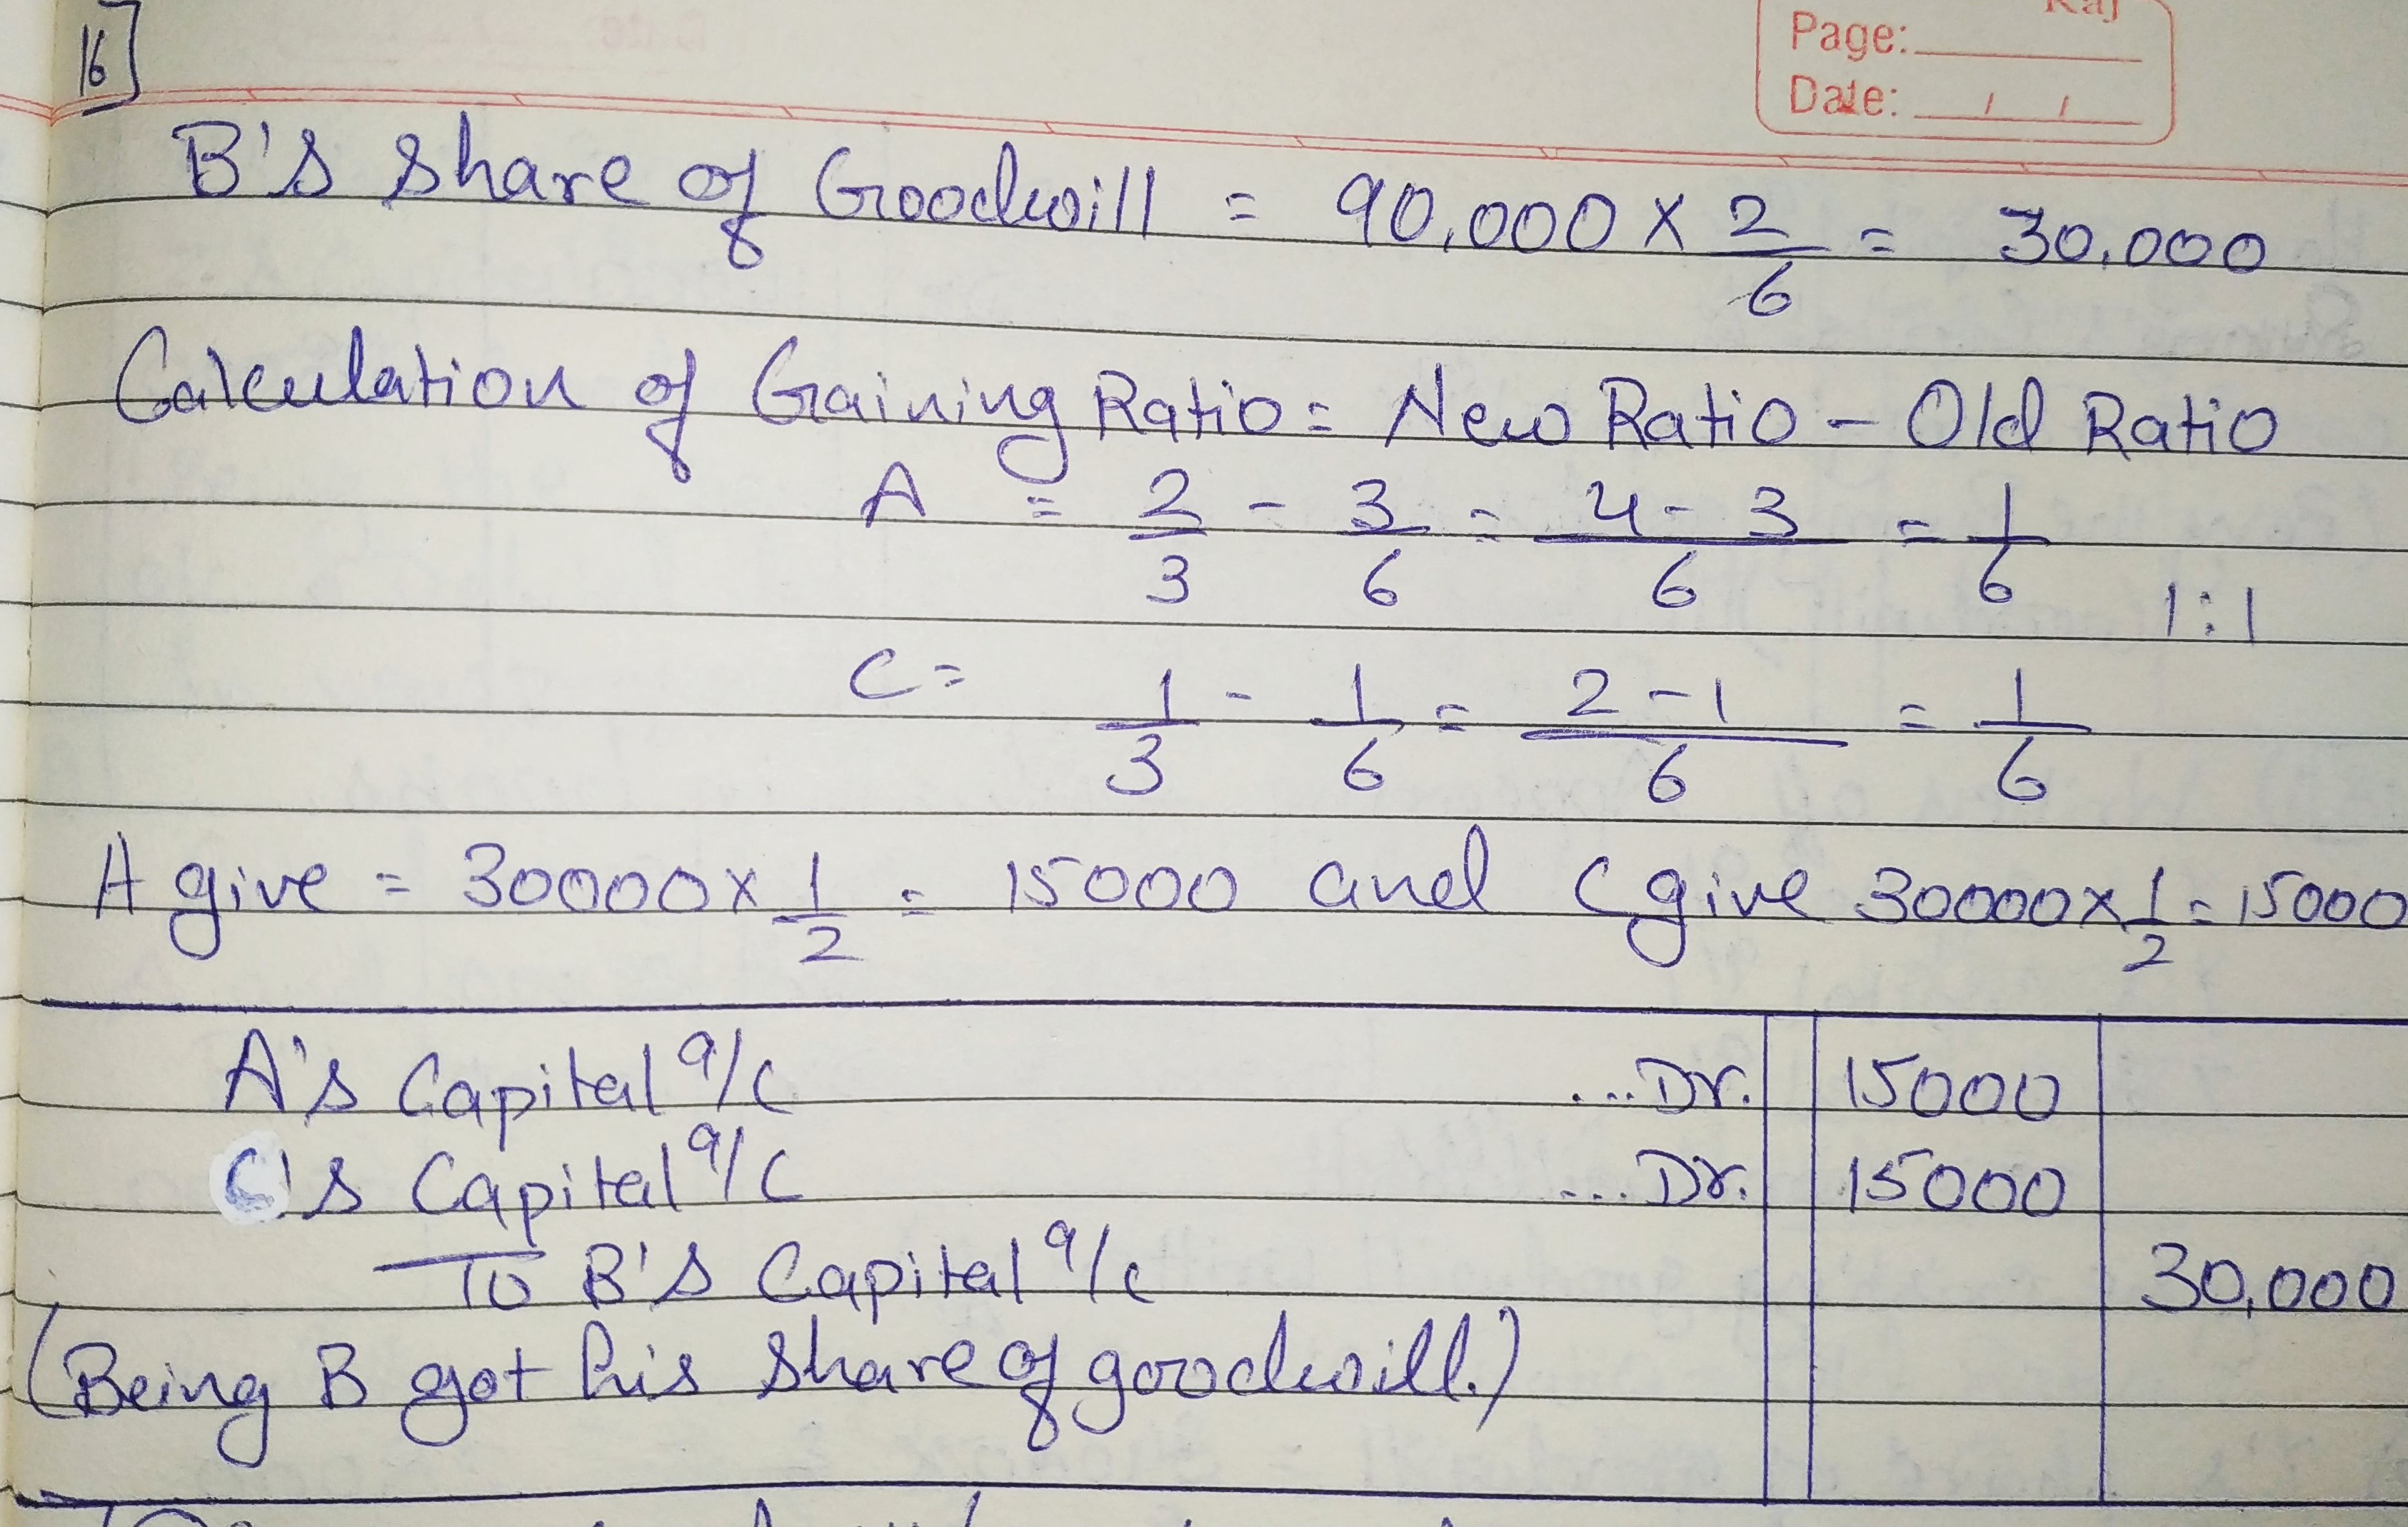 16
Raj
Page:
Date: / /
B's share of Goodwill = 90,000 × 2/6 = 30,000
Calculation of Gaining Ratio = New Ratio - Old Ratio
A = 2/3 - 3/6 = 4-3/6 = 1/6
1:1
C = 1/3 - 1/6 = 2-1/6 = 1/6
A give = 30000 × 1/2 = 15000 and C give 30000 × 1/2 = 15000
A's Capital a/c ...Dr. 15000
C's Capital a/c ...Dr. 15000
To B's Capital a/c 30,000
(Being B got his share of goodwill.)